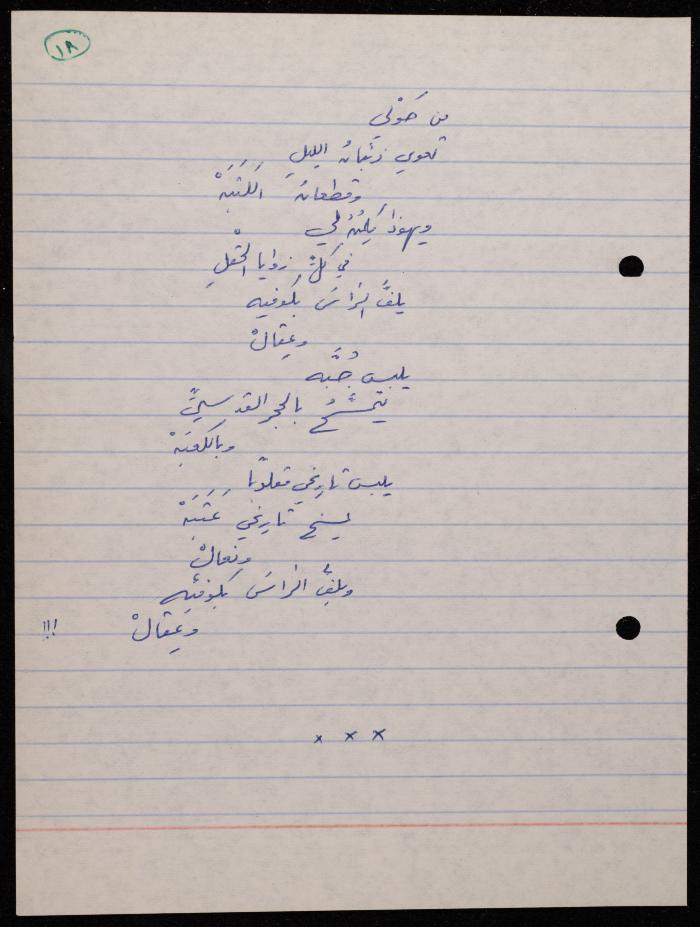 ١٨
من حَوْلي
تعوي ذئبانُ الليلِ
وقطعانُ الكَتَبَهْ
ويهوذا يَكمُنُ لي
في كلِّ زوايا الحَقْلِ
يلفُّ الرّاسَ بكوفيه
وعِقالْ
يلبس جُبَّه
يتمسَّحُ بالحجر القدسيِّ
وبالكعبَهْ
يلبس تاريخي مقلوبًا
يمسخ تاريخي عَتَبَهْ
ونعالْ
ويلفُّ الراسَ بكوفيّه
وعِقالْ !!!
× × ×